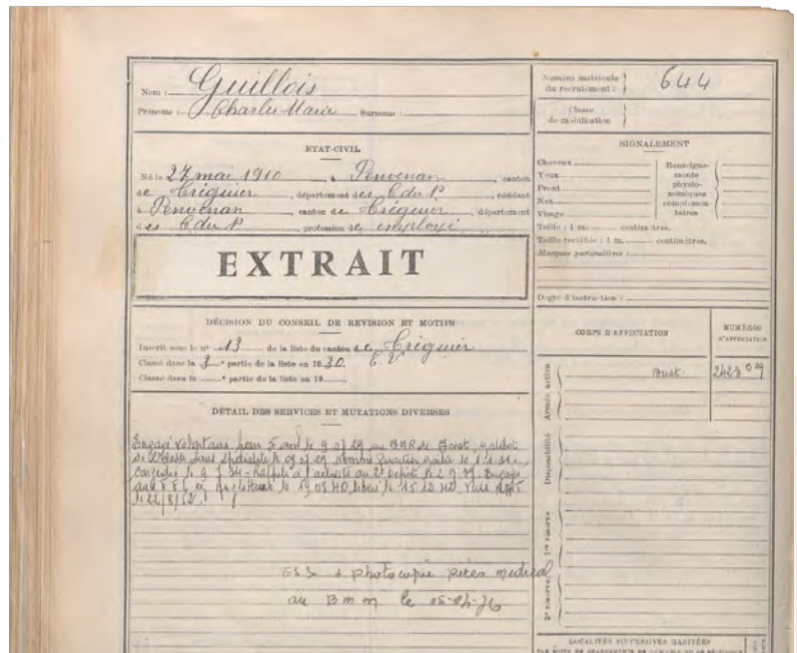 Nom : Guillois
Prénoms : Charles Marie Surnoms :
Numéro matricule du recrutement : 644
Classe de mobilisation
ETAT-CIVIL
Né le 27 mai 1910, à Penvenan, canton
de Tréguier, département des C du N, résidant
à Penvenan, canton de Tréguier, département
des C du N, profession de employé
SIGNALEMENT
Cheveux
Yeux
Front
Nez
Visage
Renseignements physionomiques complémentaires
Taille : 1 m. centimètres.
Taille rectifiée : 1 m. centimètres.
Marques particulières :
Degré d'instruction :
EXTRAIT
DÉCISION DU CONSEIL DE REVISION ET MOTIFS
Inscrit sous le n° 13 de la liste du canton de Tréguier
Classé dans la 3e partie de la liste en 1930. E.V
Classé dans la e partie de la liste en 19
CORPS D'AFFECTATION
NUMÉROS D'AFFECTATION
Armée active
Brest
2423
Disponibilité
1re réserve
2e réserve
DÉTAIL DES SERVICES ET MUTATIONS DIVERSES
Engagé volontaire pour 5 ans le 9 07 29 au Brest, matelot
de sans spécialité le 09 07 29 Nommé Quartier le 1-1-31-
Congédié le 9 7 34 - Rappelé à l'activité au 2e Dépôt le 2 9 39. Engagé
aux F F L en Angleterre le 40, libéré le 15 12 42
le 22/8/52.
+ photocopie pièces medical
au B m m le
LOCALITÉS SUCCESSIVES HABITÉES